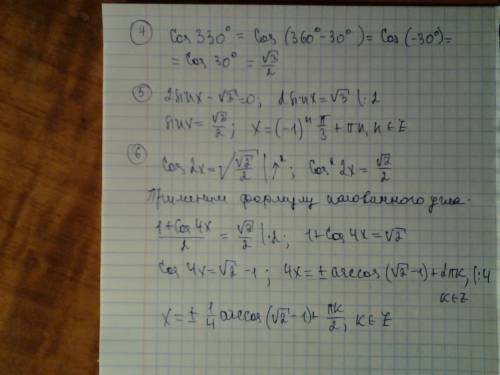 ④ Cos 330° = Cos (360° - 30°) = Cos (-30°) =
= Cos 30° = √3/2
⑤ 2sinx - √3 = 0, 2sinx = √3 |:2
sinx = √3/2; x = (-1)ⁿ π/3 + πn, n ∈ Z
⑥ Cos 2x = √(√2/2) |↑²; Cos² 2x = √2/2
Применим формулу половинного угла.
(1 + Cos 4x)/2 = √2/2 |·2; 1 + Cos 4x = √2
Cos 4x = √2 - 1; 4x = ± arccos (√2 - 1) + 2πk, |:4
k ∈ Z
x = ± 1/4 arccos (√2 - 1) + πk/2, k ∈ Z